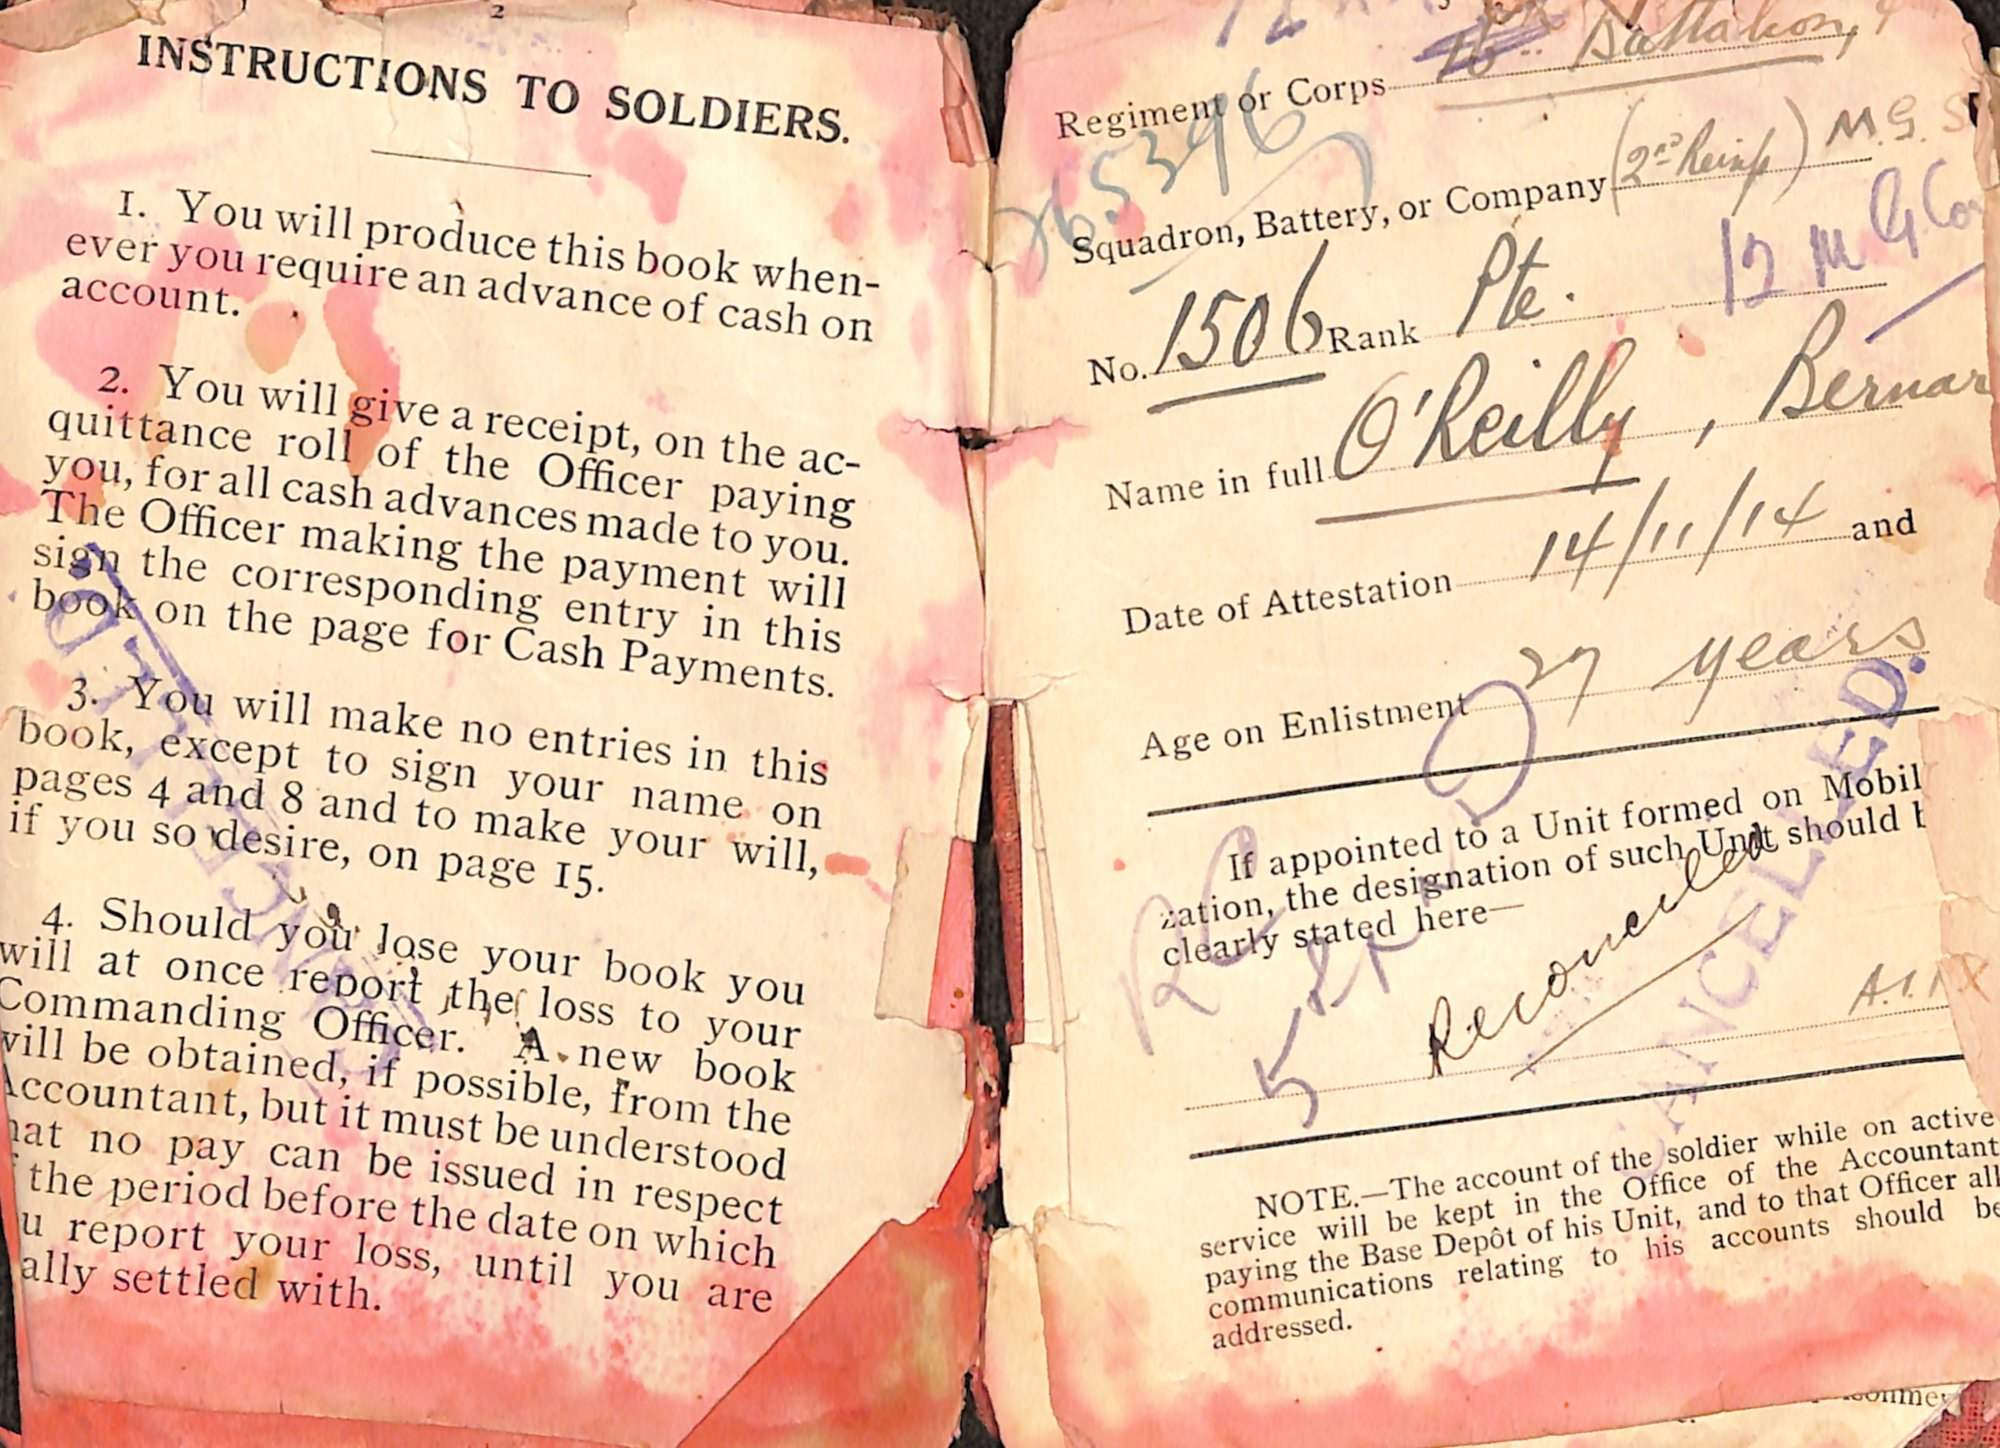 2
INSTRUCTIONS TO SOLDIERS.
1. You will produce this book when-
ever you require an advance of cash on
account.
2. You will give a receipt, on the ac-
quittance roll of the Officer paying
you, for all cash advances made to you.
The Officer making the payment will
sign the corresponding entry in this
book on the page for Cash Payments.
3. You will make no entries in this
book, except to sign your name on
pages 4 and 8 and to make your will,
if you so desire, on page 15.
4. Should you lose your book you
will at once report the loss to your
Commanding Officer. A new book
will be obtained, if possible, from the
Accountant, but it must be understood
hat no pay can be issued in respect
the period before the date on which
u report your loss, until you are
ally settled with.
Regiment or Corps 16 Battalion,
65396
Squadron, Battery, or Company (2nd Reinf) M. G. S
12 M G Co
No. 1506 Rank Pte.
Name in full O'Reilly, Bernar
Date of Attestation 14/11/14 and
Age on Enlistment 27 years
CANCELLED.
If appointed to a Unit formed on Mobil
zation, the designation of such Unit should b
clearly stated here—
Reconciled
A.I.
NOTE.—The account of the soldier while on active
service will be kept in the Office of the Accountant
paying the Base Depôt of his Unit, and to that Officer all
communications relating to his accounts should be
addressed.